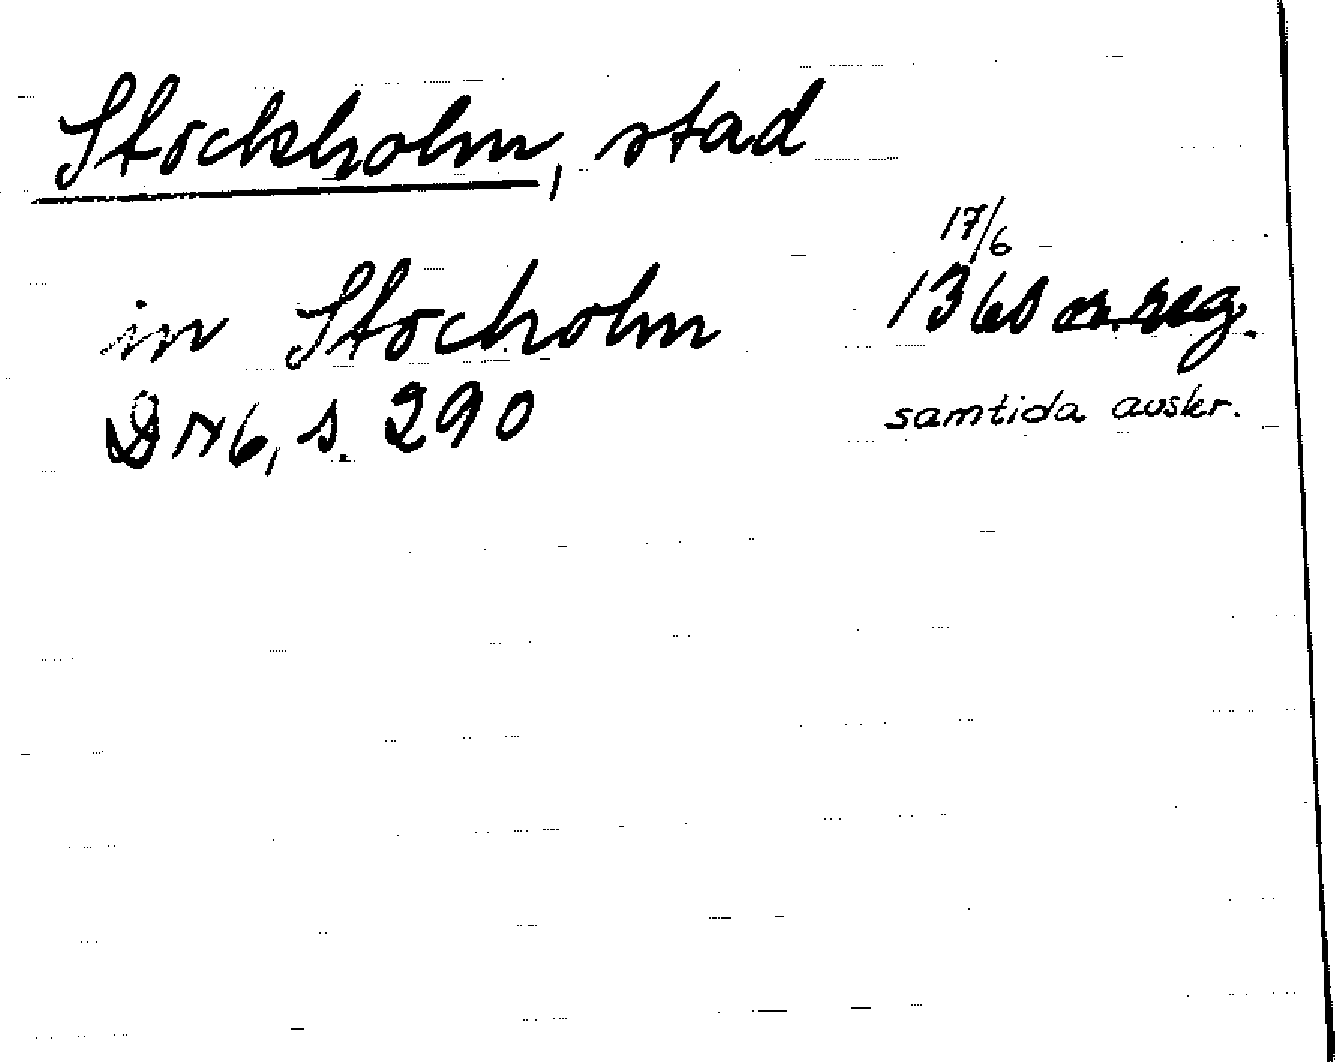 Stockholm, stad
17/6
in Stocholm 1360 or. reg.
DN6, s. 290 samtida avskr.